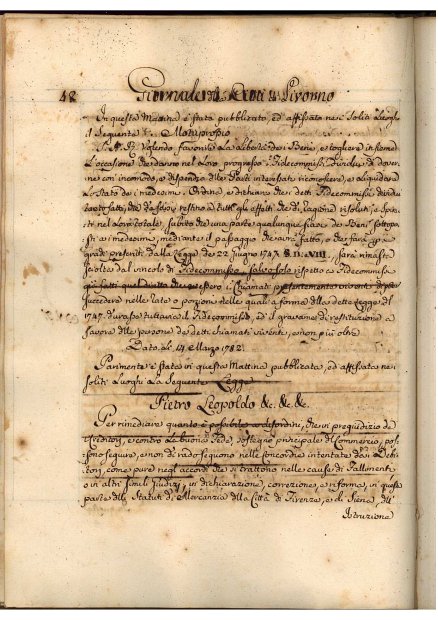 48 Giornale di Livorno
In questa Mattina è stata pubblicato, ed affissato nei Soliti Luoghi
il Sequente Motuproprio
S. A. R. Volendo favorire la Libertà dei Beni, e togliere insieme
L'occasione che danno nel Loro progresso i Fidecommissi dividui di dover-
ne con incomodo, e dispendio delle Parti interessate riconoscere, e liquidare
Lo Stato dei medesimi. Ordina, e dichiara che i detti Fidecommissi dividui
restino a tutti gli effetti di ragione risoluti, e spira-
ti nel Loro totale, subito che una parte qualunque sia dei Beni sottopo-
sti ai medesimi, mediante il passaggio che avrà fatto, o che farà
gradi prescritti dalla Legge de 22 Giugno 1747. §. N. VIII, sarà rimasta
sciolta dal vincolo di Fidecommisso, salvo solo rispetto ai Fidecommissi
già fatti che i Chiamati presentemente viventi
succedera nelle rate o porzione nelle quali a forma della detta Legge del
1747. dura per tuttavia il Fidecommisso, ed il gravame di restituzione a
favore delle persone dei detti chiamati viventi, e non più oltre
Dato li 14 Marzo 1782.
Parimente è stata in questa Mattina pubblicata, ed affissata nei
soliti Luoghi La Sequente Legge
Pietro Leopoldo &c. &c. &c.
Per rimediare quanto è possibile ai disordini, che in pregiudizio de
Creditori, e contro La buona Fede, sostegno principale del Commercio, pos-
sono seguire, e non di rado seguono nelle Concordie intentate dai Debi-
tori, come pure negl'accordi che si trattono nelle cause di Fallimenti
o in altri simili Giudizi, in dichiarazione, correzione, e riforma, in questa
parte delli Statuti di Mercanzia della Città di Firenze, e di Siena, dell'
Istruzione